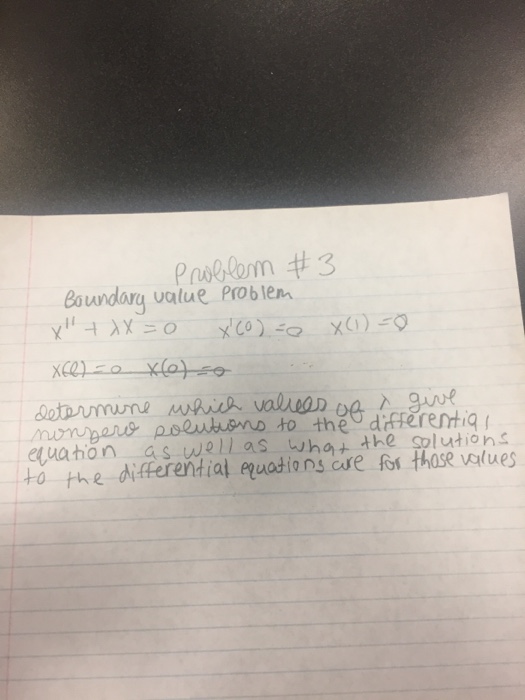 Problem #3
Boundary value Problem
x'' + λx = 0 x'(0) = 0 x(1) = 0
x(l) = 0 x(0) = 0
determine which values of λ give
nonzero solutions to the differential
equation as well as what the solutions
to the differential equations are for those values